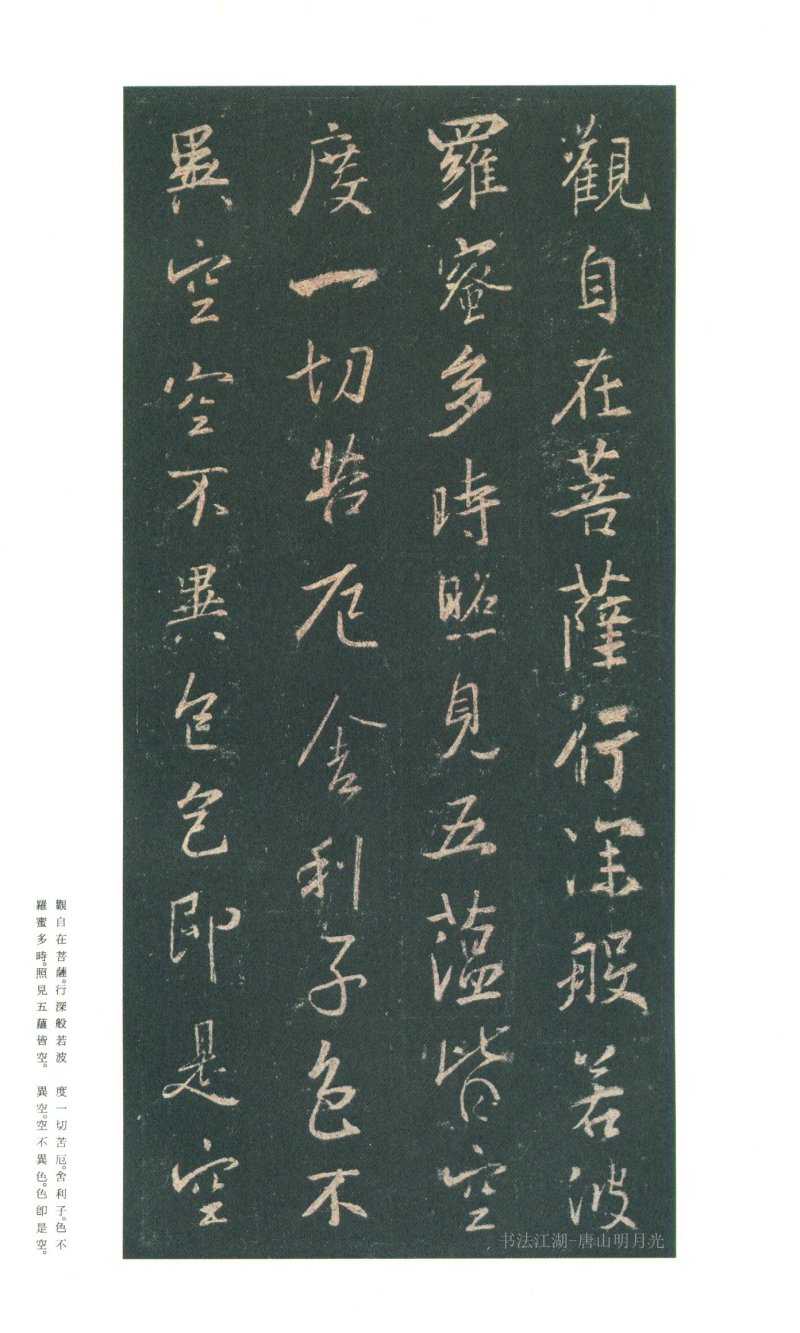 觀自在菩薩行深般若波
羅蜜多時照見五蘊皆空
度一切苦厄舍利子色不
異空空不異色色即是空
觀自在菩薩。行深般若波
羅蜜多時。照見五蘊皆空。
度一切苦厄。舍利子。色不
異空。空不異色。色卽是空。
书法江湖-唐山明月光